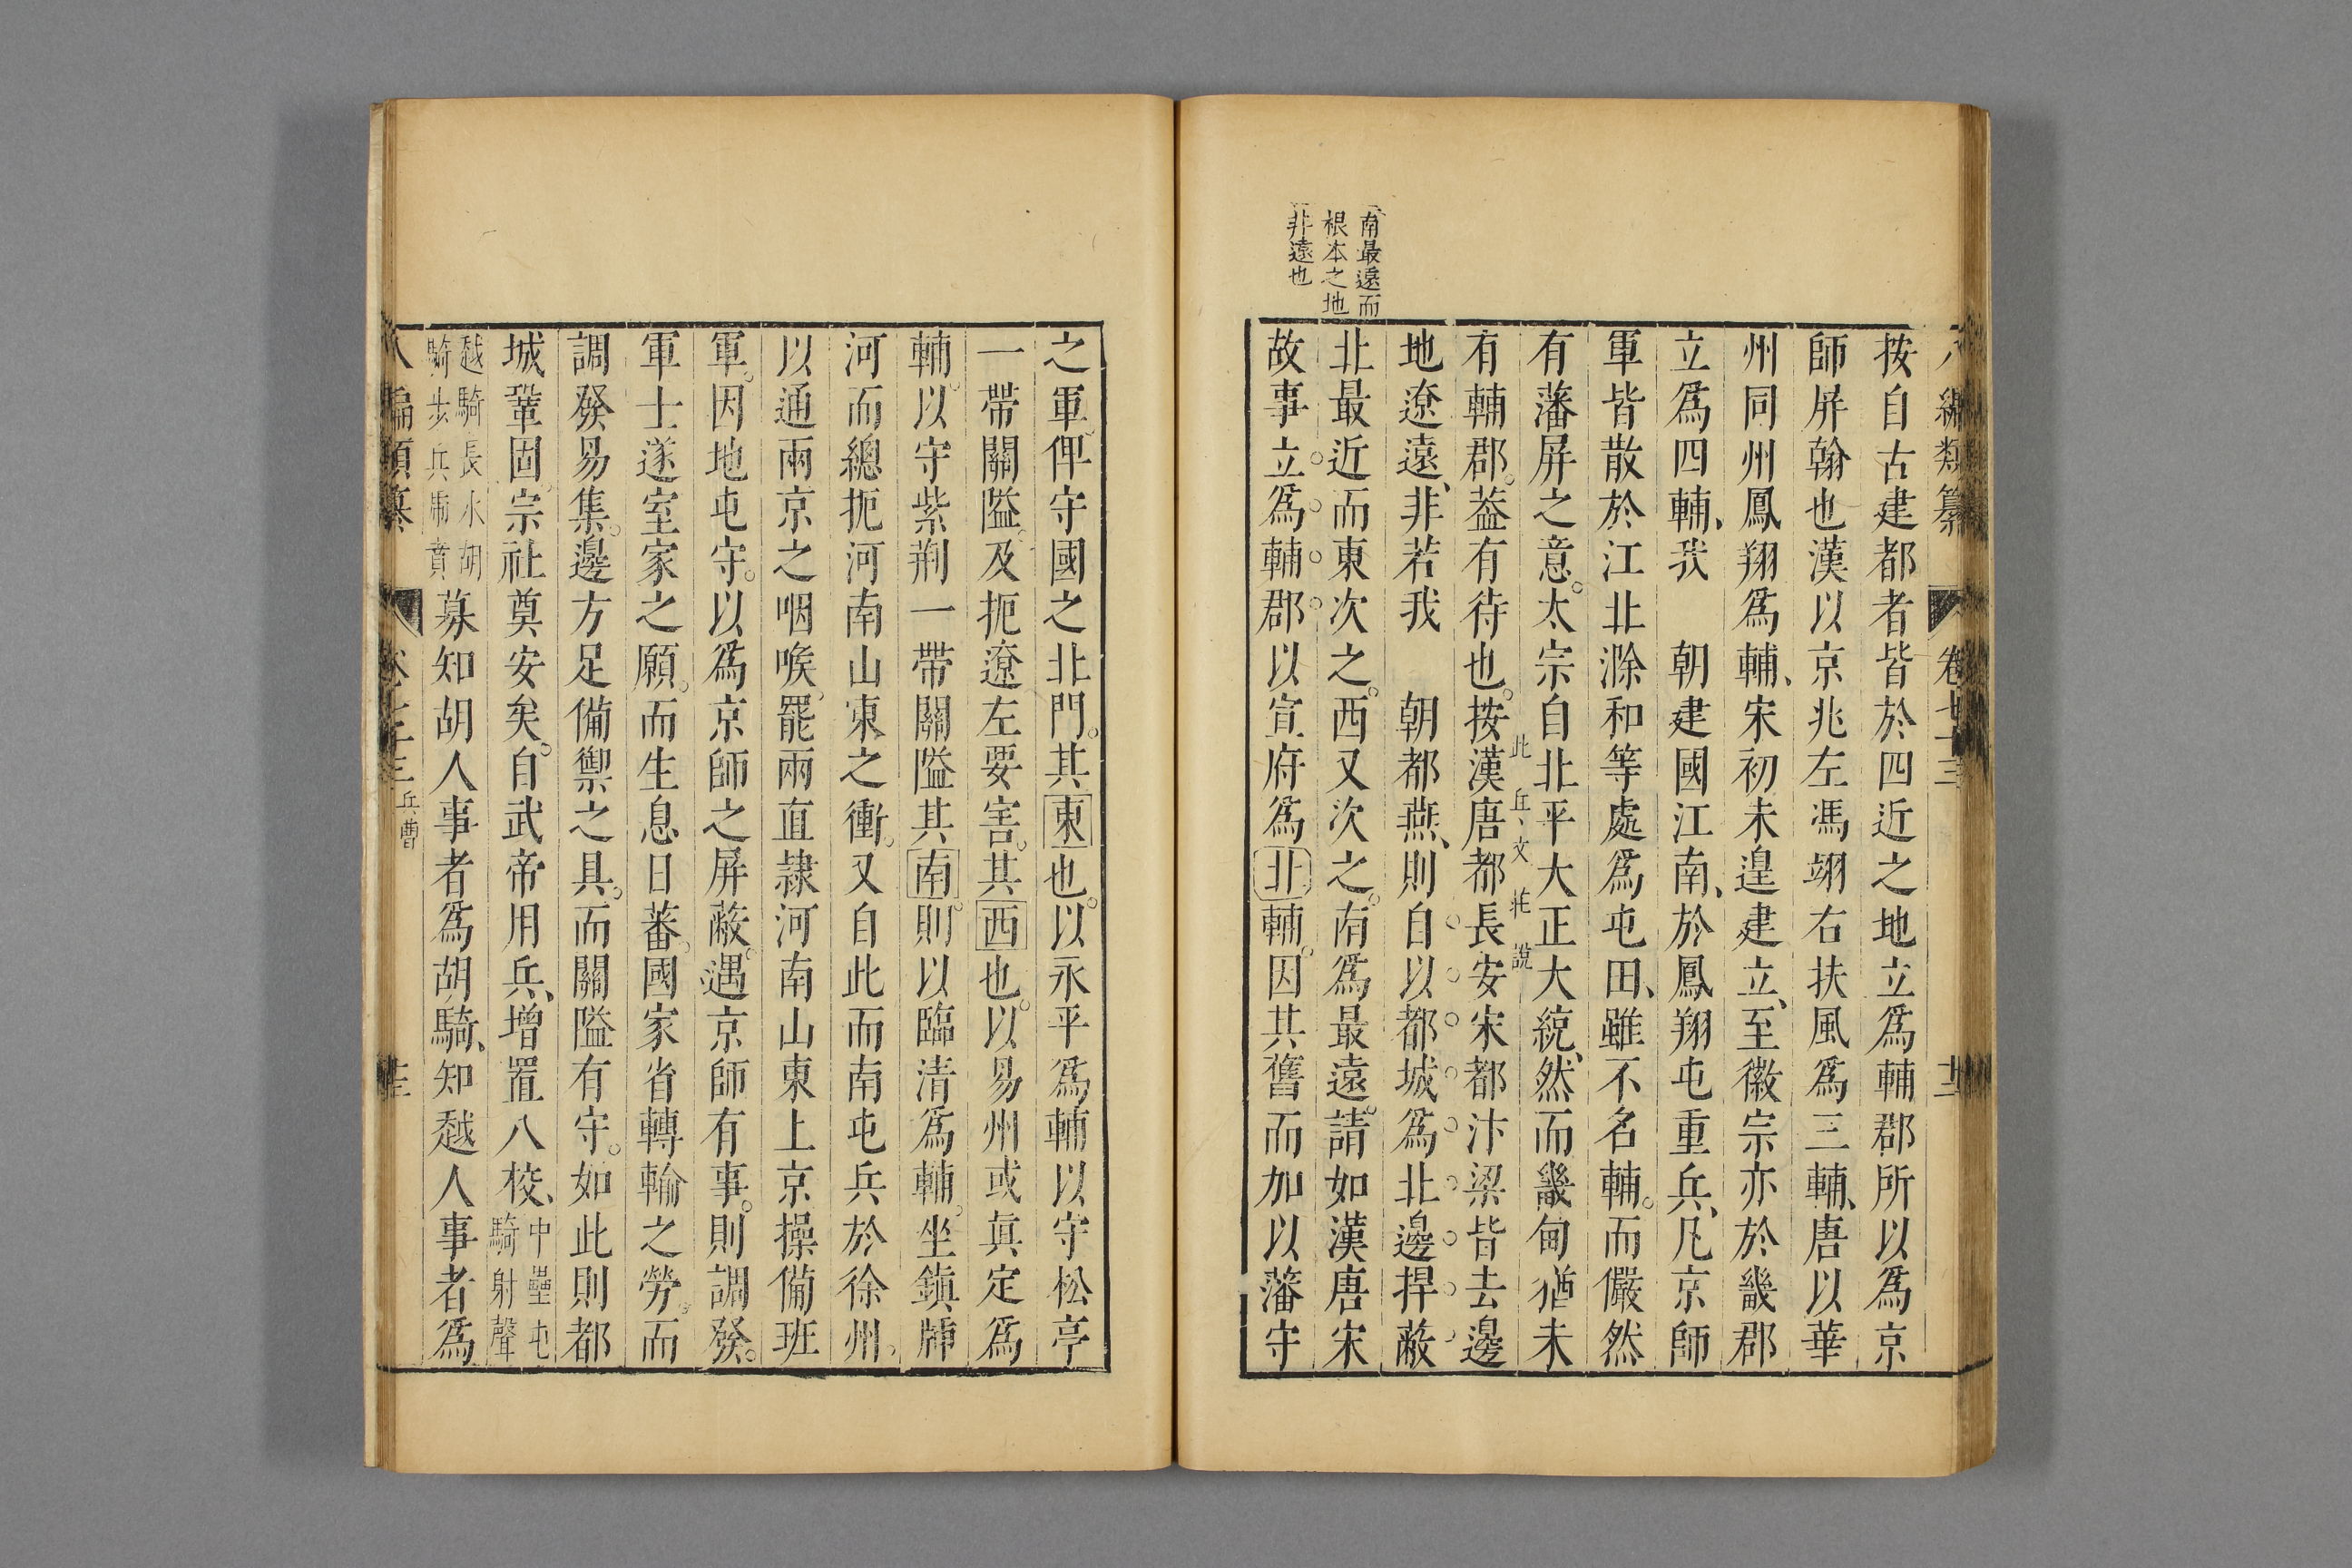 八編類纂 卷七十三
按自古建都者皆於四近之地立爲輔郡所以爲京
師屏翰也漢以京兆左馮翊右扶風爲三輔唐以華
州同州鳳翔爲輔宋初未遑建立至徽宗亦於畿郡
立爲四輔我 朝建國江南於鳳翔屯重兵凡京師
軍皆散於江北滁和等處爲屯田雖不名輔而儼然
有藩屏之意太宗自北平大正大統然而畿甸猶未
此 丘 文 莊 說
有輔郡葢有待也按漢唐都長安宋都汴梁皆去邊
地遼遠非若我 朝都燕則自以都城爲北邊捍蔽
北最近而東次之西又次之南爲最遠請如漢唐宋
故事立爲輔郡以宣府爲北輔因其舊而加以藩守
南最遠而
根本之地
非遠也
之軍俾守國之北門其東也以永平爲輔以守松亭
一帶關隘及扼遼左要害其西也以易州或眞定爲
輔以守紫荆一帶關隘其南則以臨淸爲輔坐鎭牐
河而總扼河南山東之衝又自此而南屯兵於徐州
以通兩京之咽喉罷兩直隷河南山東上京操備班
軍因地屯守以爲京師之屏蔽遇京師有事則調發
軍士遂室家之願而生息日蕃國家省轉輸之勞而
調發易集邊方足備禦之具而關隘有守如此則都
城鞏固宗社奠安矣自武帝用兵增置八校中壘屯
騎射聲
越騎長水胡
騎步兵虎賁募知胡人事者爲胡騎知越人事者爲
八編類纂 卷七十三 兵曹